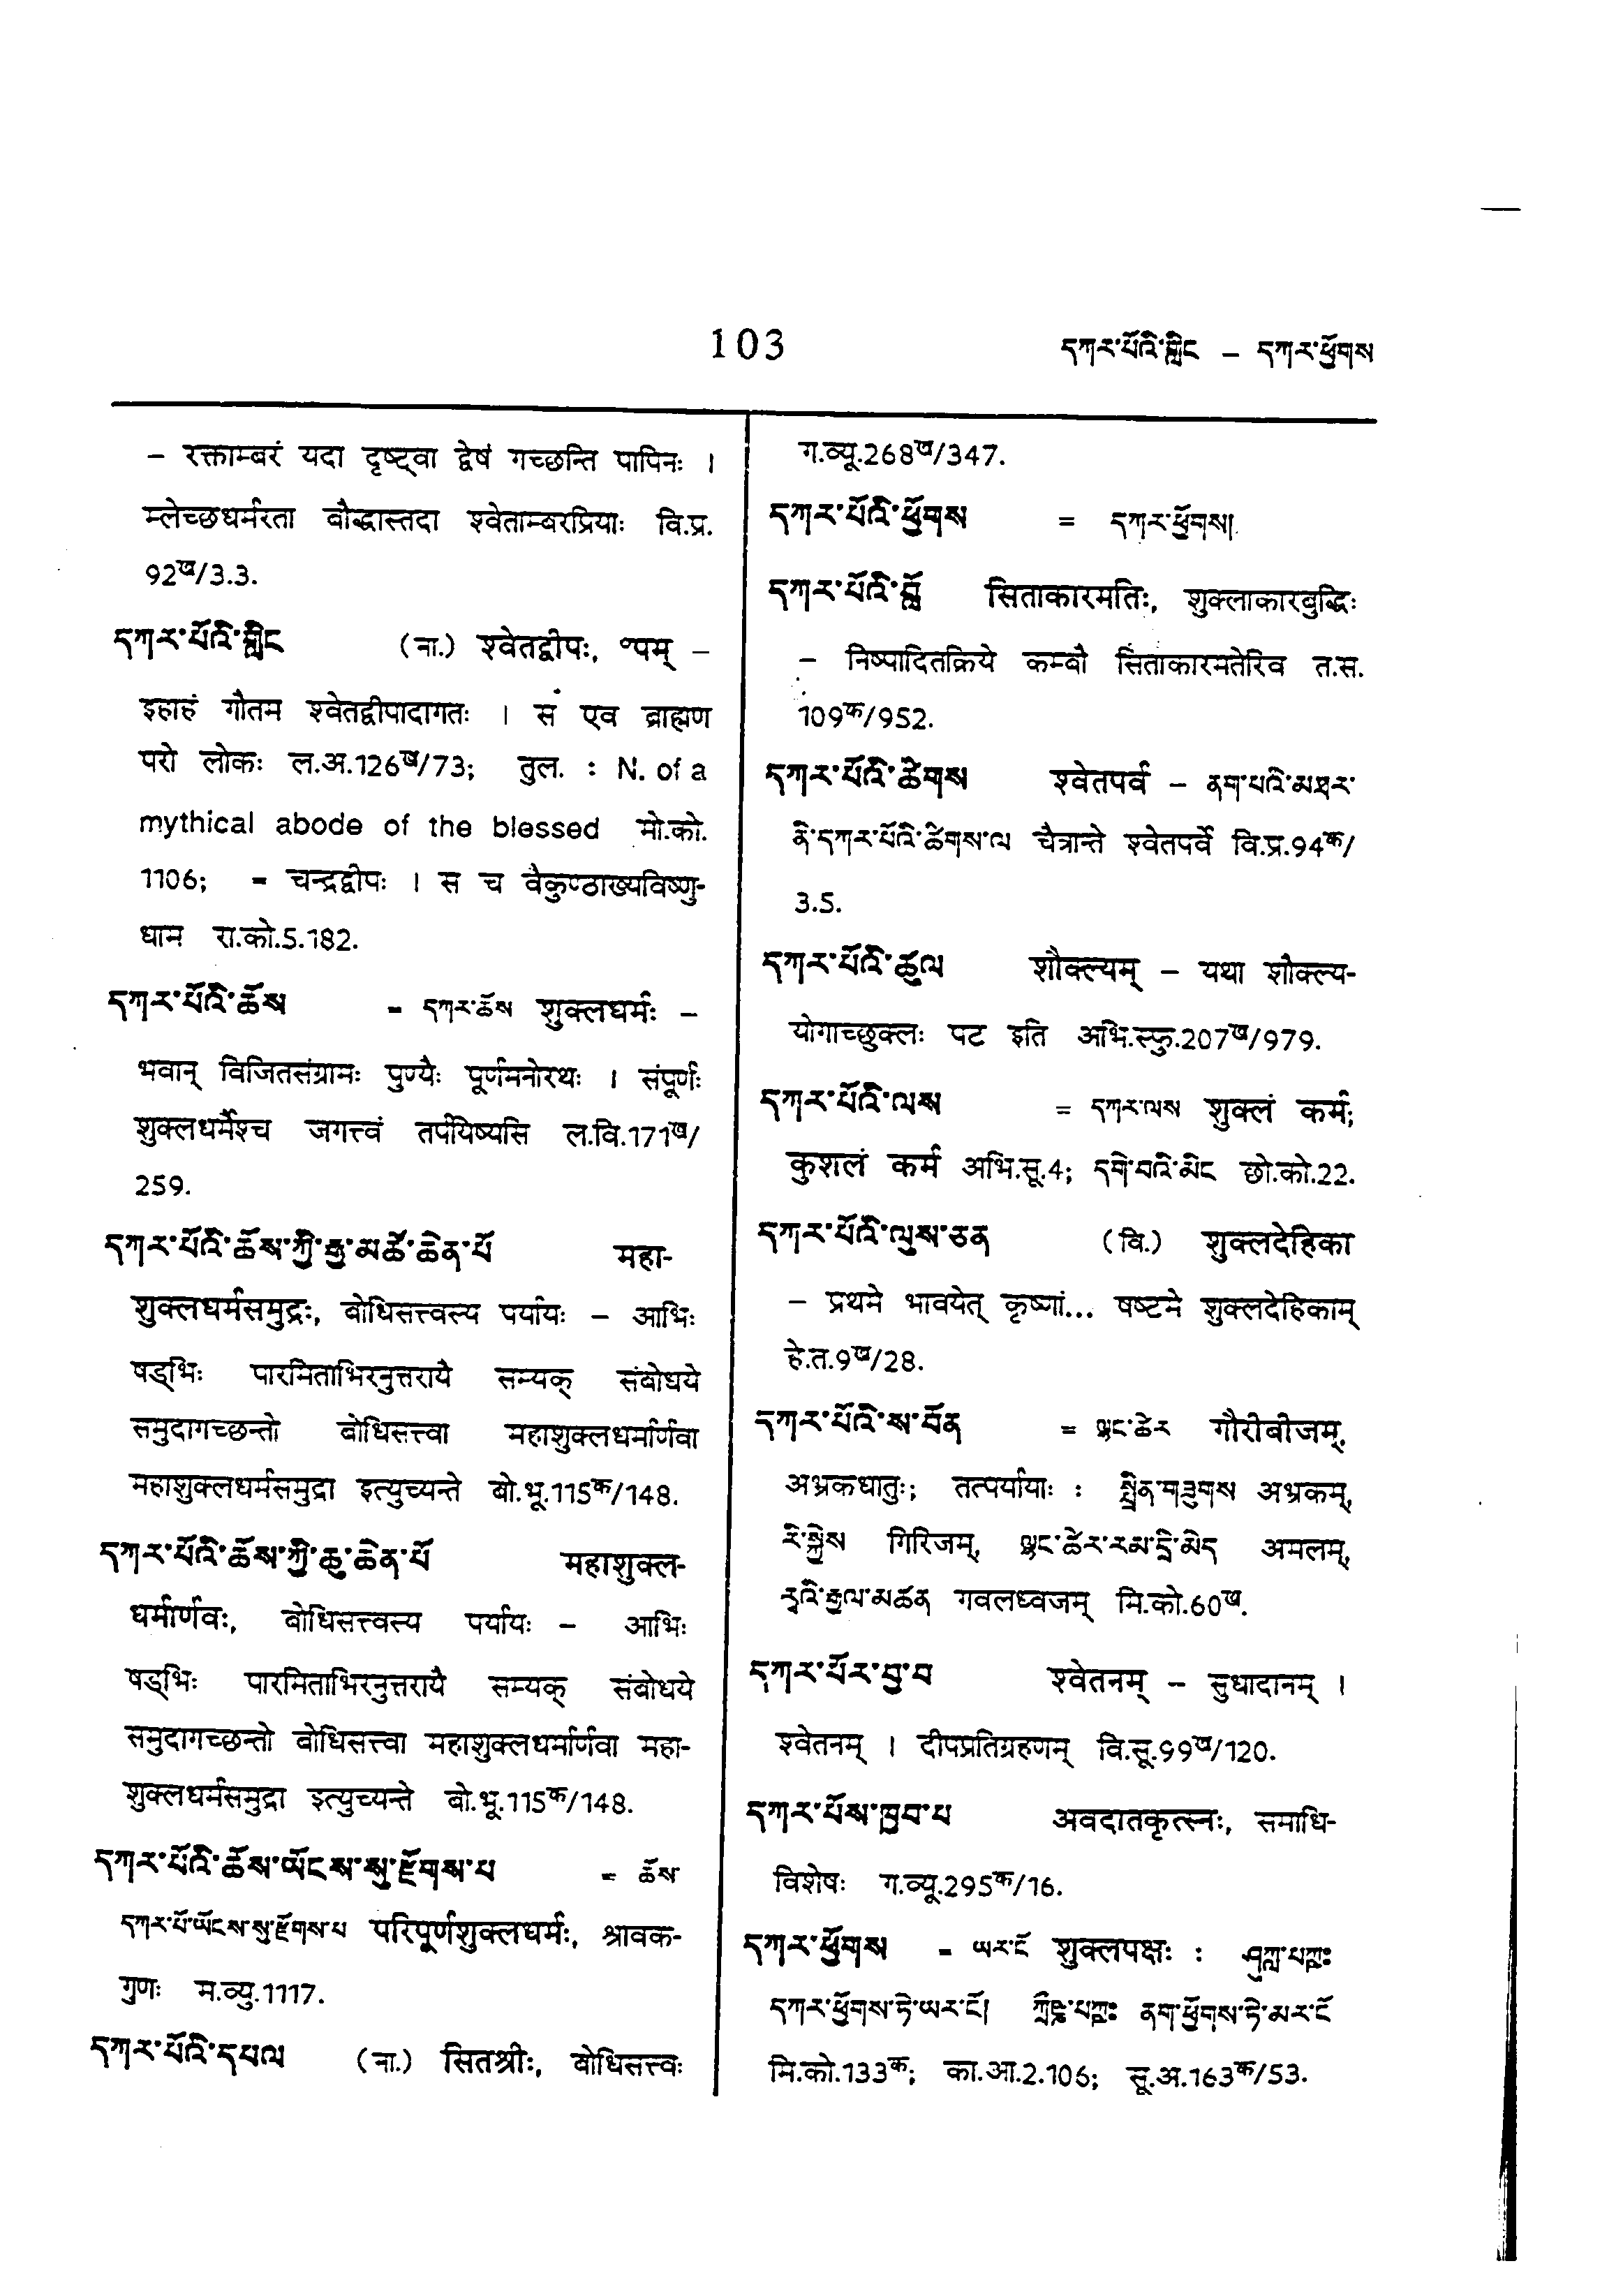 103
དཀར་པོའི་གླིང – དཀར་ཕྱོགས
– रक्ताम्बरं यदा दृष्ट्वा द्वेषं गच्छन्ति पापिनः ।
म्लेच्छधर्मरता बौद्धास्तदा श्वेताम्बरप्रियाः वि.प्र.
92ख/3.3.
དཀར་པོའི་གླིང (ना.) श्वेतद्वीपः, ॰पम् –
इहाहं गौतम श्वेतद्वीपादागतः । स एव ब्राह्मण
परो लोकः ल.अ.126ख/73; तुल. : N. of a
mythical abode of the blessed मो.को.
1106; = चन्द्रद्वीपः । स च वैकुण्ठाख्यविष्णु-
धाम रा.को.5.182.
དཀར་པོའི་ཆོས = དཀར་ཆོས शुक्लधर्मः –
भवान् विजितसंग्रामः पुण्यैः पूर्णमनोरथः । संपूर्णः
शुक्लधर्मैश्च जगत्त्वं तर्पयिष्यसि ल.वि.171ख/
259.
དཀར་པོའི་ཆོས་ཀྱི་རྒྱ་མཚོ་ཆེན་པོ महा-
शुक्लधर्मसमुद्रः, बोधिसत्त्वस्य पर्यायः – आभिः
षड्भिः पारमिताभिरनुत्तरायै सम्यक् संबोधये
समुदागच्छन्तो बोधिसत्त्वा महाशुक्लधर्मार्णवा
महाशुक्लधर्मसमुद्रा इत्युच्यन्ते बो.भू.115क/148.
དཀར་པོའི་ཆོས་ཀྱི་ཆུ་ཆེན་པོ महाशुक्ल-
धर्मार्णवः, बोधिसत्त्वस्य पर्यायः – आभिः
षड्भिः पारमिताभिरनुत्तरायै सम्यक् संबोधये
समुदागच्छन्तो बोधिसत्त्वा महाशुक्लधर्मार्णवा महा-
शुक्लधर्मसमुद्रा इत्युच्यन्ते बो.भू.115क/148.
དཀར་པོའི་ཆོས་ཡོངས་སུ་རྫོགས་པ = ཆོས་
དཀར་པོ་ཡོངས་སུ་རྫོགས་པ परिपूर्णशुक्लधर्मः, श्रावक-
गुणः म.व्यु.1117.
དཀར་པོའི་དཔལ (ना.) सितश्रीः, बोधिसत्त्वः
ग.व्यू.268ख/347.
དཀར་པོའི་ཕྱོགས = དཀར་ཕྱོགས།
དཀར་པོའི་བློ सिताकारमतिः, शुक्लाकारबुद्धिः
– निष्पादितक्रिये कम्बौ सिताकारमतेरिव त.स.
109क/952.
དཀར་པོའི་ཚིགས श्वेतपर्व – ནག་པའི་མཐར་
ནི་དཀར་པོའི་ཚིགས་ལ चैत्रान्ते श्वेतपर्वे वि.प्र.94क/
3.5.
དཀར་པོའི་ཚུལ शौक्ल्यम् – यथा शौक्ल्य-
योगाच्छुक्लः पट इति अभि.स्फु.207ख/979.
དཀར་པོའི་ལས = དཀར་ལས शुक्लं कर्म;
कुशलं कर्म अभि.सू.4; དགེ་བའི་མིང छो.को.22.
དཀར་པོའི་ལུས་ཅན (वि.) शुक्लदेहिका
– प्रथमे भावयेत् कृष्णां... षष्टमे शुक्लदेहिकाम्
हे.त.9ख/28.
དཀར་པོའི་ས་བོན = ལྷང་ཚེར गौरीबीजम्,
अभ्रकधातुः; तत्पर्यायाः : སྤྲིན་གཟུགས अभ्रकम्,
རི་སྐྱེས गिरिजम्, ལྷང་ཚེར་རམ་དྲི་མེད अमलम्,
རྭའི་རྒྱལ་མཚན गवलध्वजम् मि.को.60ख.
དཀར་པོར་བྱ་བ श्वेतनम् – सुधादानम् ।
श्वेतनम् । दीपप्रतिग्रहणम् वि.सू.99ख/120.
དཀར་པོས་ཁྱབ་པ अवदातकृत्स्नः, समाधि-
विशेषः ग.व्यू.295क/16.
དཀར་ཕྱོགས = ཡར་ངོ शुक्लपक्षः : ཤུཀླ་པཀྵཿ
དཀར་ཕྱོགས་ཏེ་ཡར་ངོ། ཀྲྀཥྞ་པཀྵཿ ནག་ཕྱོགས་ཏེ་མར་ངོ
मि.को.133क; का.आ.2.106; सू.अ.163क/53.